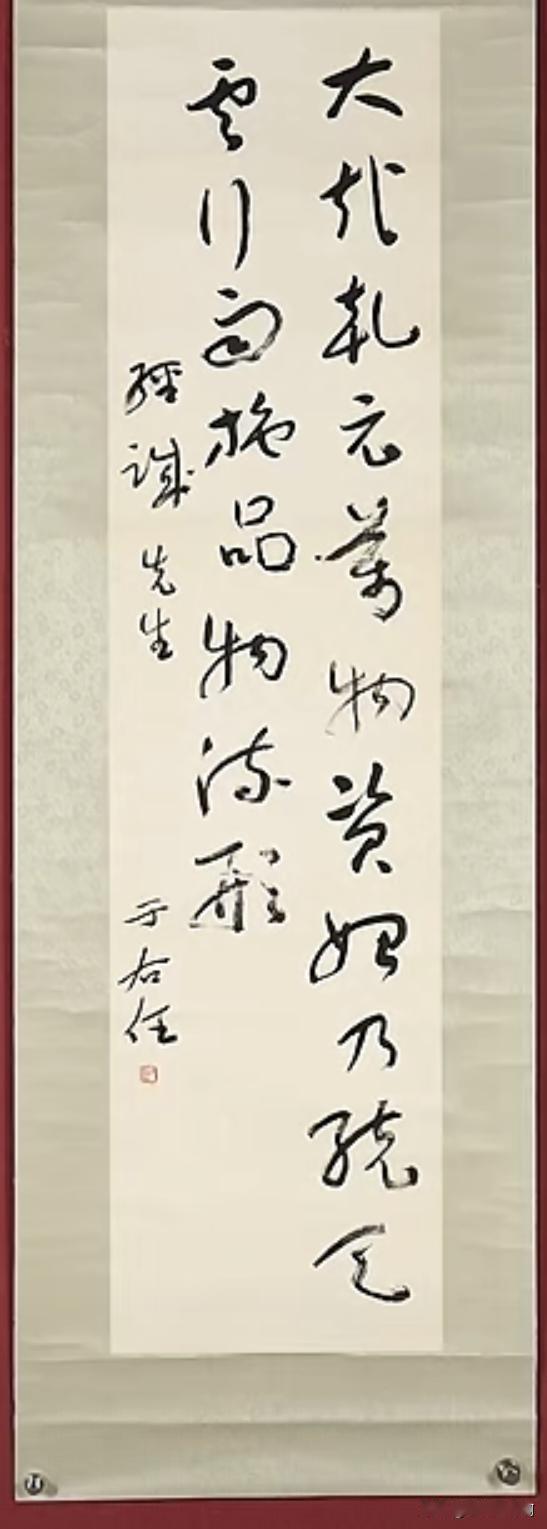 大哉乾元萬物資始乃統天
雲行雨施品物流形
經誠先生
于右任